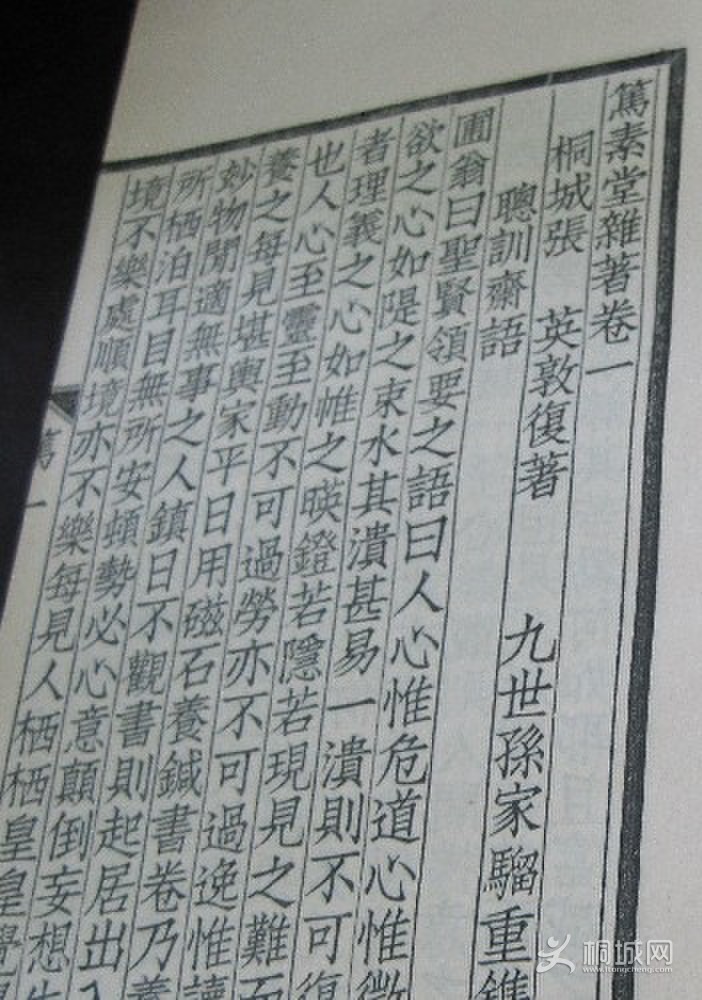 篤素堂雜著卷一
桐城張　英敦復著　九世孫家騮重鐫
聰訓齋語
圃翁曰聖賢領要之語曰人心惟危道心惟微
欲之心如隄之束水其潰甚易一潰則不可復
者理義之心如帷之暎鐙若隱若現見之難而
也人心至靈至動不可過勞亦不可過逸惟讀
養之每見堪輿家平日用磁石養鍼書卷乃養
妙物閒適無事之人鎮日不觀書則起居出入
所栖泊耳目無所安頓勢必心意顛倒妄想生
境不樂處順境亦不樂每見人栖栖皇皇覺
一
桐城网
www.tongcheng.com